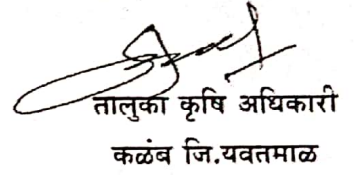 तालुका कृषि अधिकारी
कळंब जि.यवतमाळ